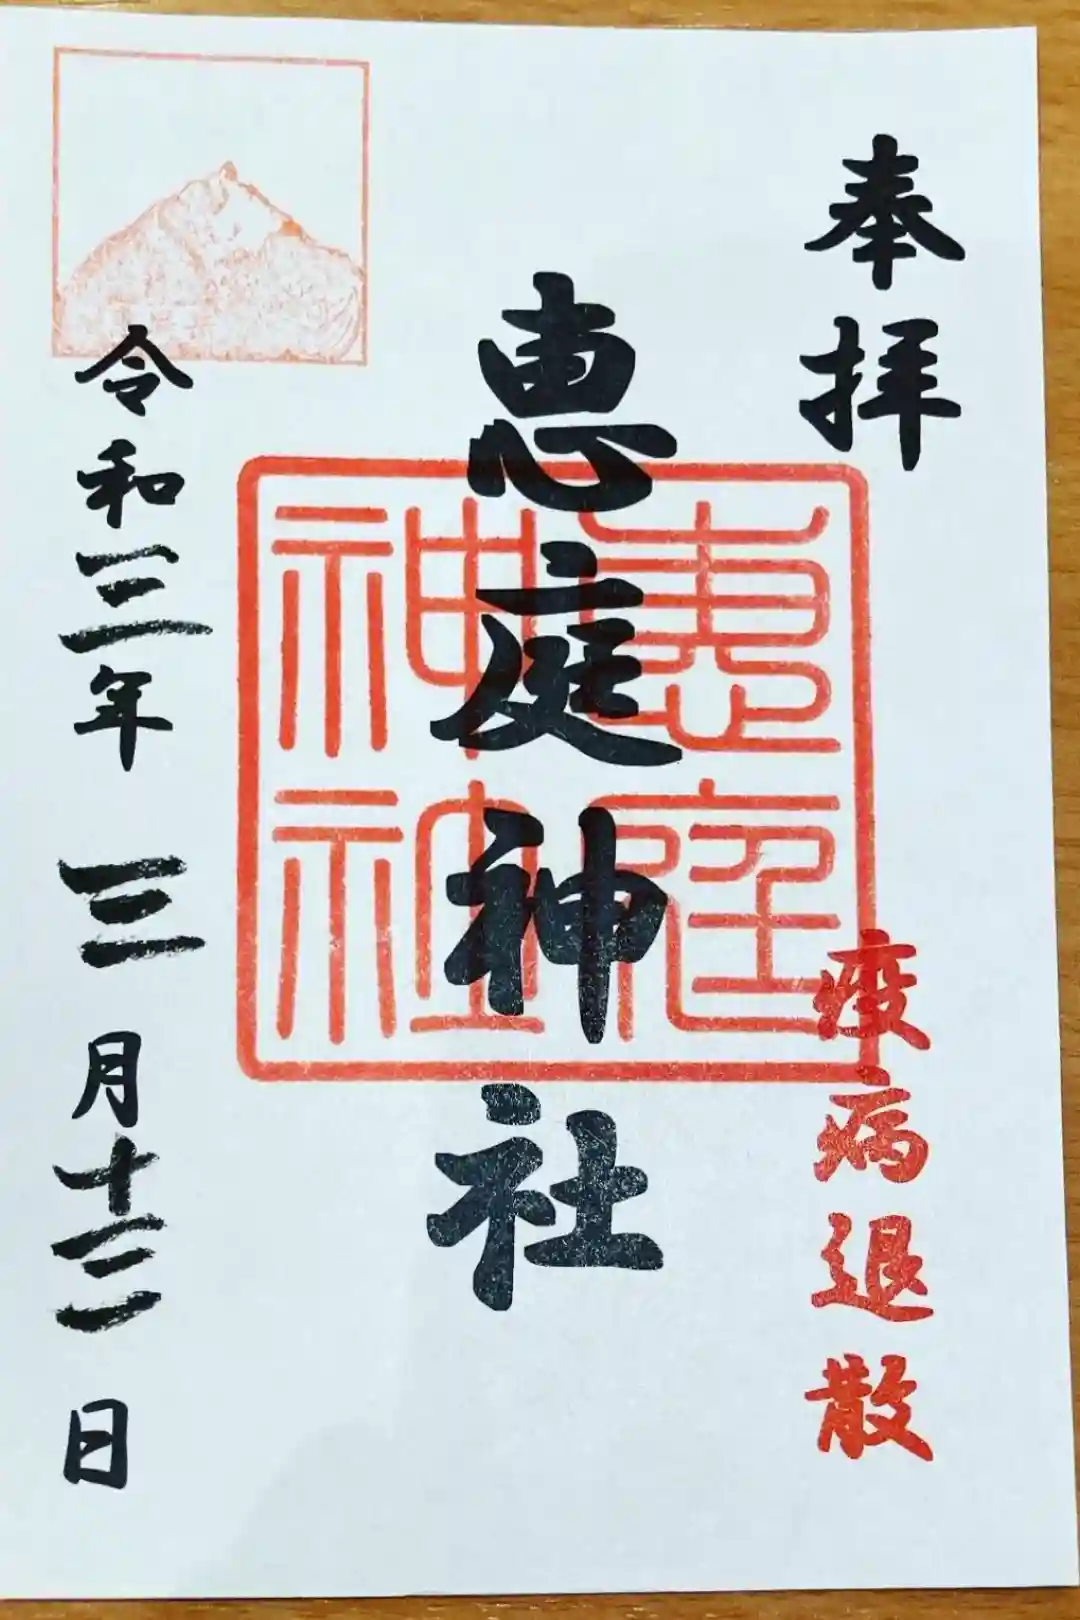 奉拝
疫病退散
恵庭神社
恵庭
神社
令和三年 三月十三日